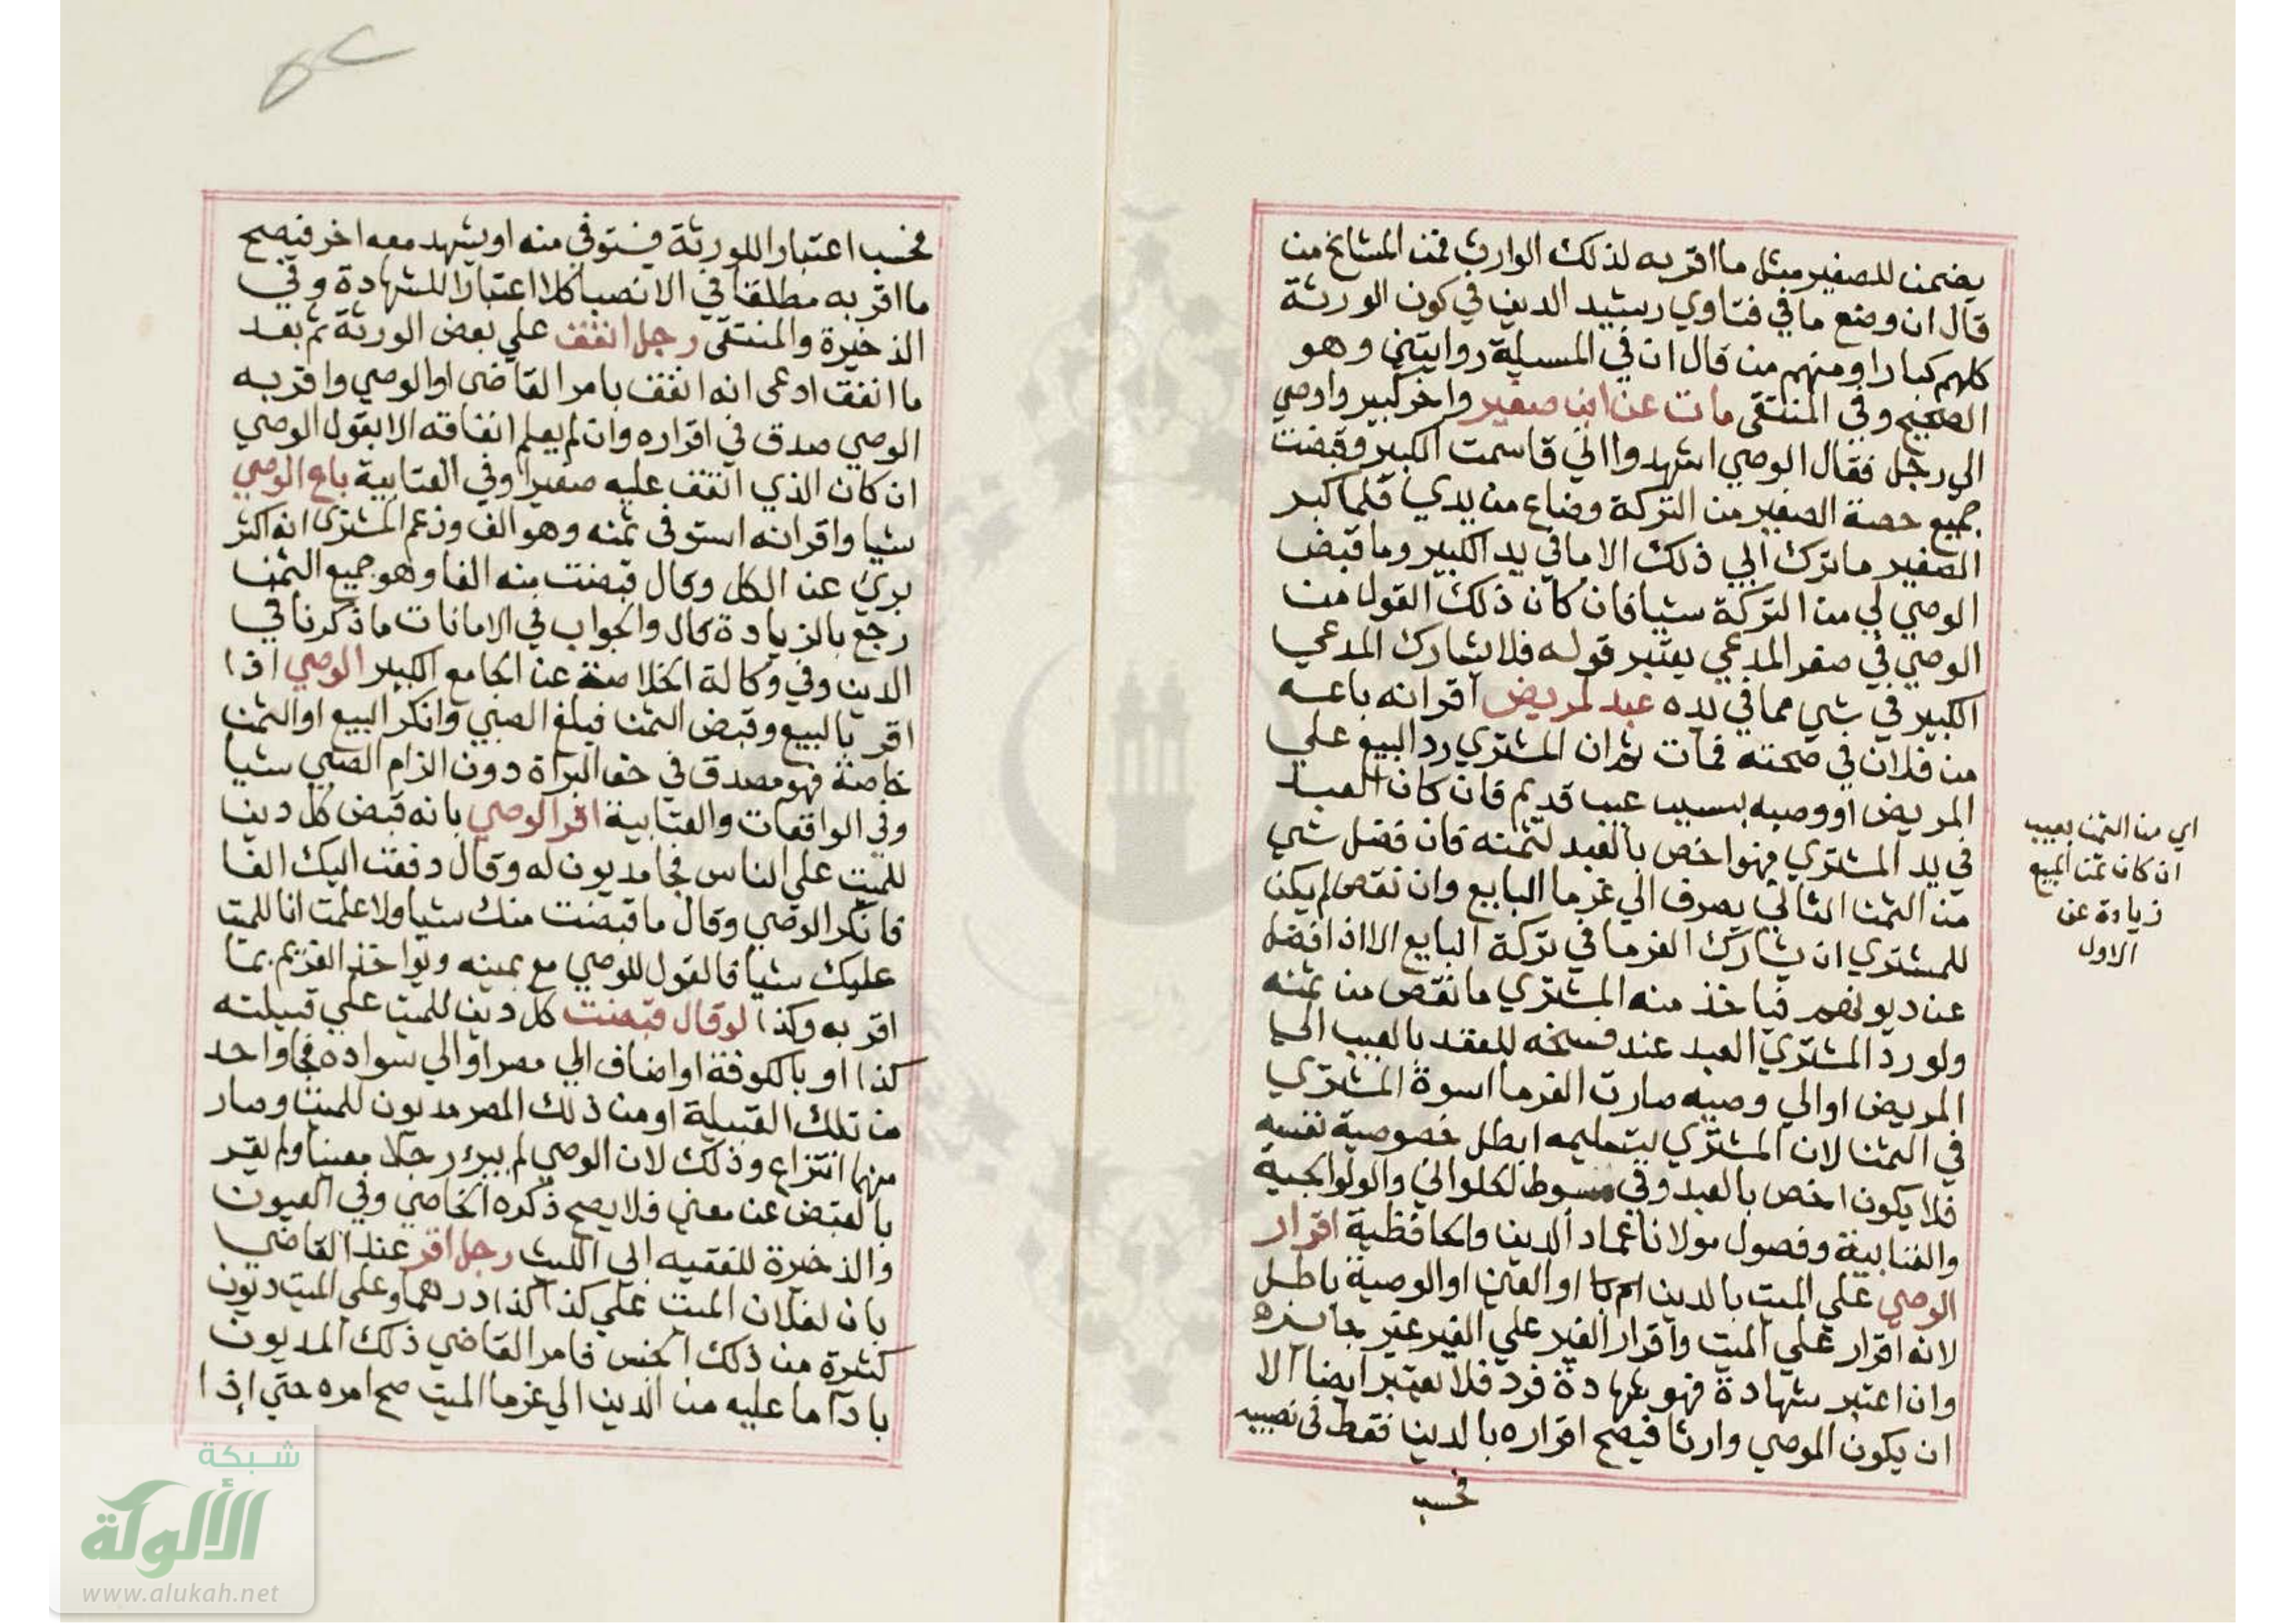 يضمن للصغير مثل ما اقر به لذلك الوارث فمن المشايخ من
قال ان وضع ما في فتاوي رشيد الدين في كون الورثة
كلهم كبارا ومنهم من قال ان في المسيلة روايتين وهو
الصحيح وفي المنتقى مات عن ابن صغير واخر كبير واوصي
الي رجل فقال الوصي اشهدوا اني قاسمت الكبير وقبضت
جميع حصة الصغير من التركة وضاع من يدي فلما كبر
الصغير ما ترك ابي ذلك الا ما في يد الكبير وما قبض
الوصي لي من التركة شيا فان كان ذلك القول من
الوصي في صغر المدعي يعتبر قوله فلا يشارك المدعي
الكبير في شي مما في يده عبد لمريض اقر انه باعه
من فلان في صحته فمات ثم ان المشتري رد البيع علي
المريض او وصيه بسبب عيب قديم فان كان العبد
في يد المشتري فهو اخص بالعبد لثمنه فان فضل شي
من الثمن الثاني يصرف الي غرما البايع وان نقص لم يكن
للمشتري ان يشارك الغرما في تركة البايع الا اذا فضل
عن ديونهم فياخذ منه المشتري ما نقص من ثمنه
ولو رد المشتري العبد عند فسخه للعقد بالعيب الي
المريض او الي وصيه صارت الغرما اسوة المشتري
في الثمن لان المشتري بتسليمه ابطل خصوصية نفسه
فلا يكون اخص بالعبد وفي مبسوط الحلواني والولوالجية
والعتابية وفصول مولانا عماد الدين والحافظية اقرار
الوصي علي الميت بالدين او العين او الوصية باطل
لانه اقرار علي الميت واقرار الغير علي الغير غير جايزه
وان اعتبر شهادة فهو شهادة فرد فلا تعتبر ايضا الا
ان يكون الموصي وارثا فيصح اقراره بالدين فقط في نصيبه
فحسب
اي من الثمن بعيب
ان كان ثمن المبيع
زيادة عن
الاول
فحسب اعتبارا للورثة فيستوفي منه او يشهد معه اخر فيصح
ما اقر به مطلقا في الانصبا كلا اعتبارا للشهادة وفي
الذخيرة والمنتقى رجل انفق علي بعض الورثة ثم بعد
ما انفق ادعى انه انفق بامر القاضى او الوصي واقر به
الوصي صدق في اقراره وان لم يعلم انفاقه الا بقول الوصي
ان كان الذي انفق عليه صغيرا وفي العتابية باع الوصي
شيا واقر انه استوفى ثمنه وهو الف وزعم المشترى انه اكثر
بري عن الكل وقال قبضت منه الفا وهو جميع الثمن
رجع بالزيادة قال والجواب في الامانات ما ذكرنا في
الدين وفي وكالة الخلاصة عن الجامع الكبير الوصي اذا
اقر بالبيع وقبض الثمن فبلغ الصبي وانكر البيع او الثمن
خاصة فهو مصدق في حق البراة دون الزام الصبي شيا
وفي الواقعات والعتابية اقر الوصي بانه قبض كل دين
للميت علي الناس فجا مديون له وقال دفعت اليك الفا
فانكر الوصي وقال ما قبضت منك شيا ولا علمت ان للميت
عليك شيا فالقول للوصي مع يمينه ويواخذ الغريم بما
اقر به وكذا لو قال قبضت كل دين للميت علي قبيلته
كذا او بالكوفة او اضاف الي مصر او الي سواده فجا واحد
من تلك القبيلة او من ذلك المصر مديون للميت وصار
منهما انتزاع وذلك لان الوصي لم يبرء رجلا معينا ولم يقر
بالقبض عن معين فلا يصح ذكره الخاصي وفي العيون
والذخيرة للفقيه ابي الليث رجل اقر عند القاضي
بان لفلان الميت علي كذا كذا درهما وعلي الميت ديون
كثيرة من ذلك الجنس فامر القاضي ذلك المديون
بادآ ما عليه من الدين الي غرما الميت صح امره حتي اذا
شبكة
الألوكة
www.alukah.net